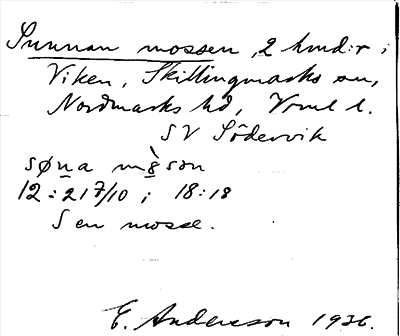 Sunnan mossen, 2 hmd:r i
Viken, Skillingmarks sn,
Nordmarks hd, Vrml l.
SV Södervik
søna mòsǝn
12:217/10 ; 18:18
S en mosse.
E. Andersson 1936.